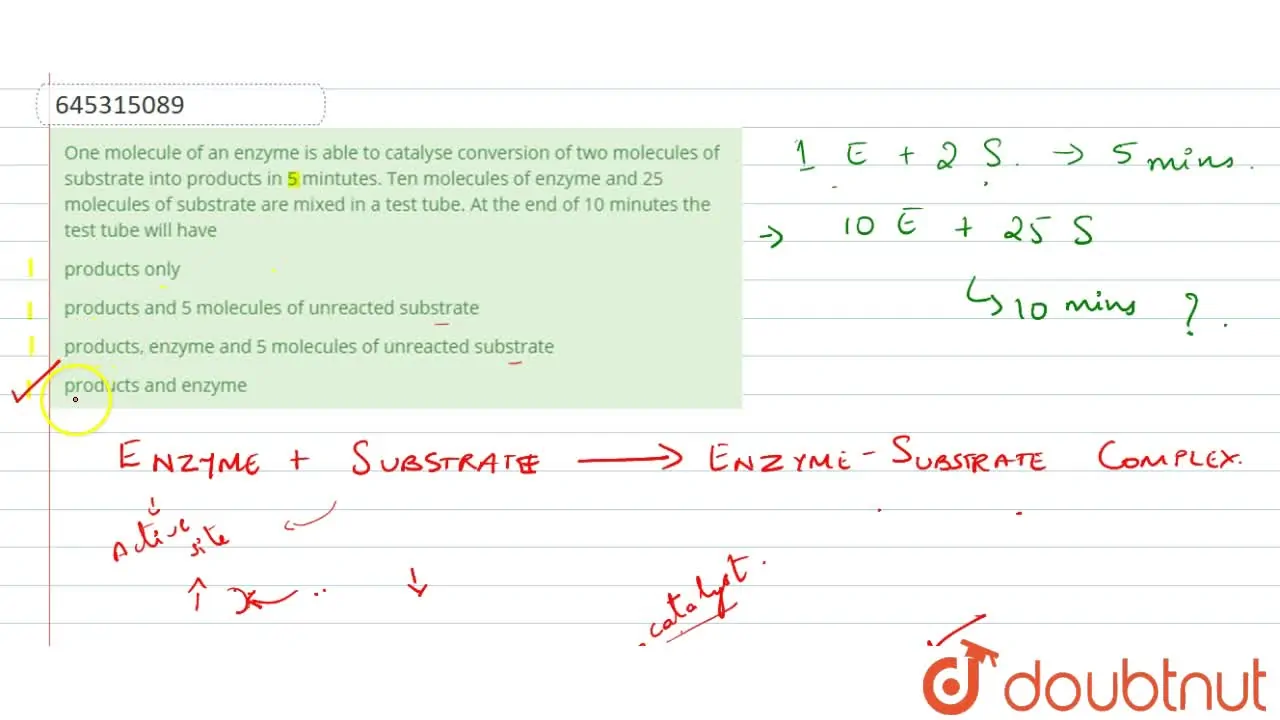 645315089
One molecule of an enzyme is able to catalyse conversion of two molecules of
substrate into products in 5 mintutes. Ten molecules of enzyme and 25
molecules of substrate are mixed in a test tube. At the end of 10 minutes the
test tube will have
products only
products and 5 molecules of unreacted substrate
products, enzyme and 5 molecules of unreacted substrate
products and enzyme
1 E + 2 S. → 5 mins.
→ 10 E + 25 S
↳ 10 mins ?.
ENZYME + SUBSTRATE → ENZYME-SUBSTRATE COMPLEX.
↓
Active
site
↑
↓
catalyst.
doubtnut